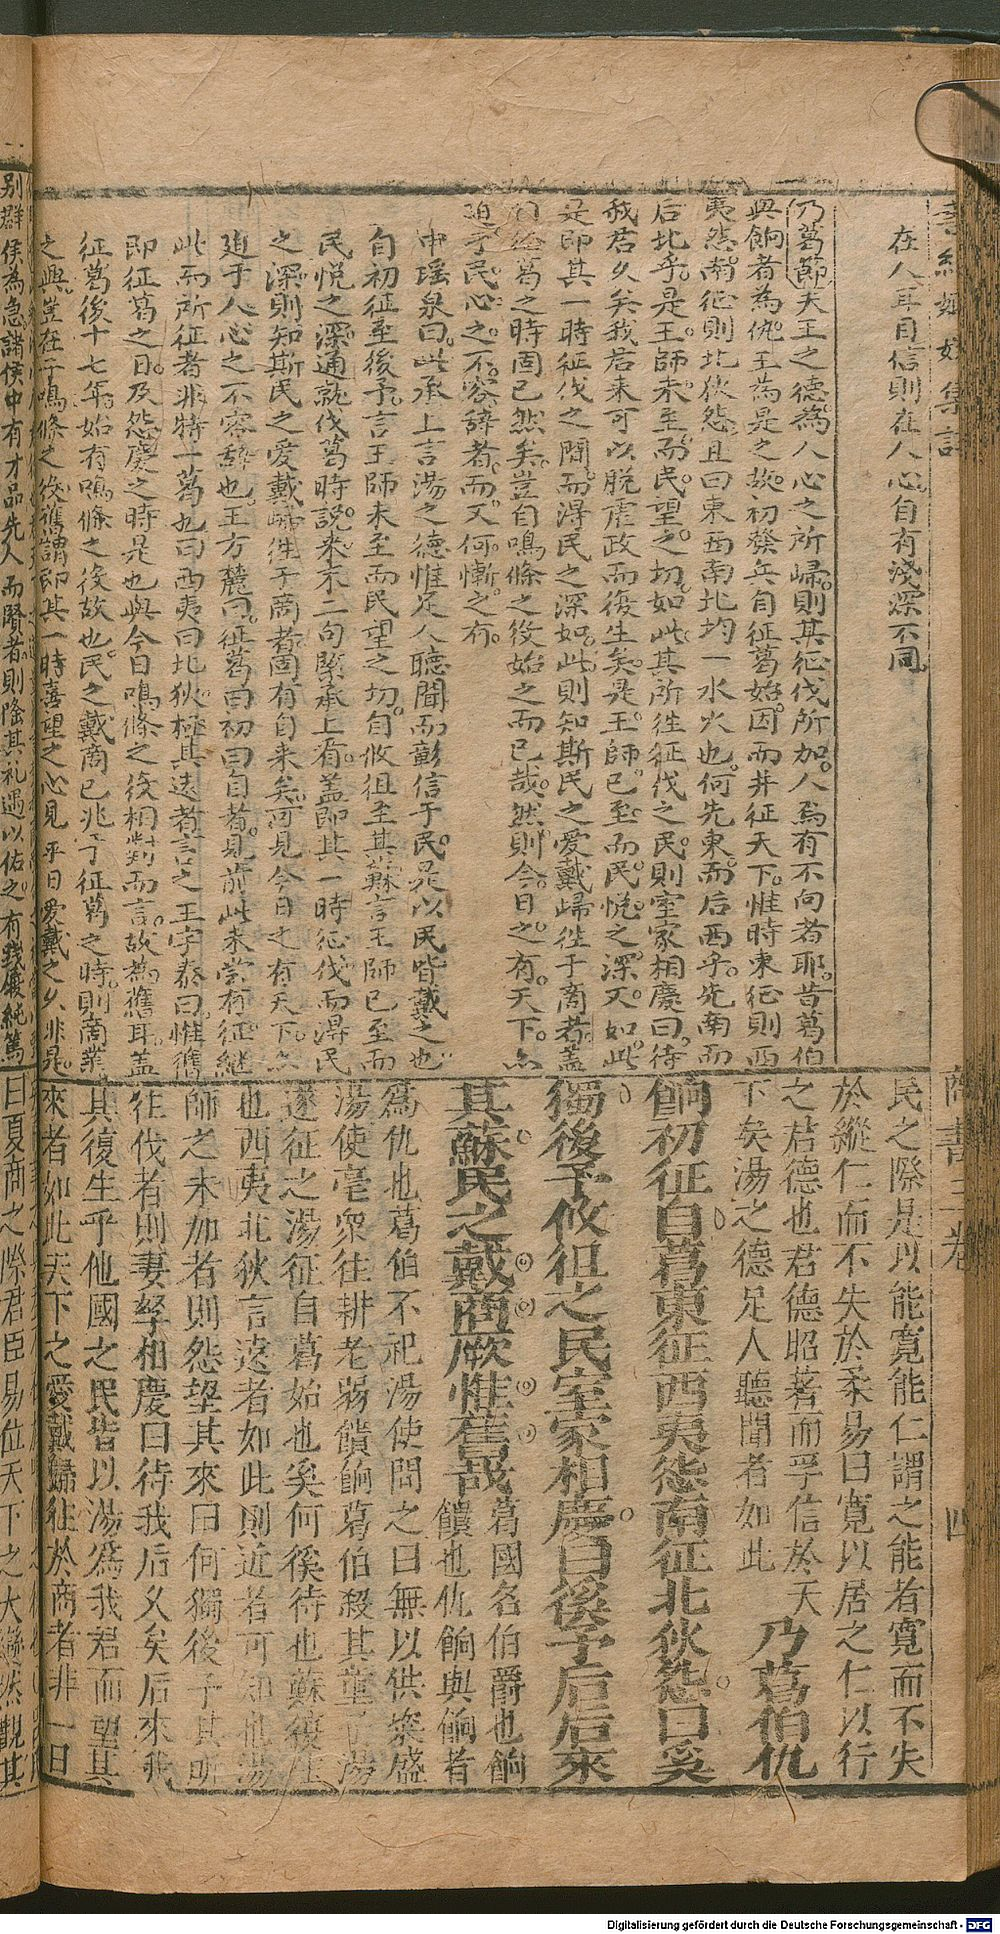 在人耳目信則在人心自有淺深不同
乃葛節夫王之德為人心之所歸則其征伐所加人焉有不向者耶昔葛伯
與餉者為仇王為是之故初發兵自征葛始因而并征天下惟時東征則西
夷怨南征則北狄怨且曰東西南北均一水火也何先東而后西乎先南而
后北乎是王師未至而民望之切如此其所徃征伐之民則室家相慶曰待
我君久矣我君来可以脱虐政而復生矣是王師已至而民悅之深又如此
是即其一時征伐之間而淂民之深如此則知斯民之愛戴歸徃于商者蓋
葛之時固已然矣豈自鳴條之役始之而已哉然則今日之有天下亦
迫于民心之不容辞者而又何慚之有
申瑶泉曰此承上言湯之德惟足人聽聞而彰信于民是以民皆戴之也
自初征至後予言王師未至而民望之切自攸徂至其蘇言王師已至而
民悅之深通就伐葛時説来末二句緊承上有蓋即其一時征伐而淂民
之深則知斯民之愛戴歸徃于商者固有自来矣可見今日之有天下亦
迫于人心之不容辞也王方麓曰征葛曰初曰自者見前此未嘗有征継
此而所征者非特一葛也曰西夷曰北狄極其遠者言之王宇泰曰惟舊
即征葛之日及怨慶之時是也與今日鳴條之役相對而言故為舊耳蓋
征葛後十七年始有鳴條之役故也民之戴商已兆于征葛之時則商業
之興豈在于鳴條之役舊謂即其一時喜望之心見平日愛戴之久非是
商書三卷
四
民之際是以能寛能仁謂之能者寛而不失
於縱仁而不失於柔易曰寛以居之仁以行
之君德也君德昭著而孚信於天
下矣湯之德足人聽聞者如此
乃葛伯仇
餉初征自葛東征西夷怨南征北狄怨曰奚
獨後予攸徂之民室家相慶曰徯予后后來
其蘇民之戴商厥惟舊哉
葛國名伯爵也餉
饋也仇餉與餉者
為仇也葛伯不祀湯使問之曰無以供粢盛
湯使亳衆往耕老弱饋餉葛伯殺其童子湯
遂征之湯征自葛始也奚何徯待也蘇復生
也西夷北狄言遠者如此則近者可知也湯
師之未加者則怨望其來曰何獨後予其所
往伐者則妻孥相慶曰待我后久矣后來我
其復生乎他國之民皆以湯為我君而望其
來者如此天下之愛戴歸往於商者非一日
别群侯為急諸侯中有才品先人而賢者則隆其礼遇以佑之有
純篤
曰夏商之際君臣易位天下之大變然觀其
Digitalisierung gefördert durch die Deutsche Forschungsgemeinschaft - DFG